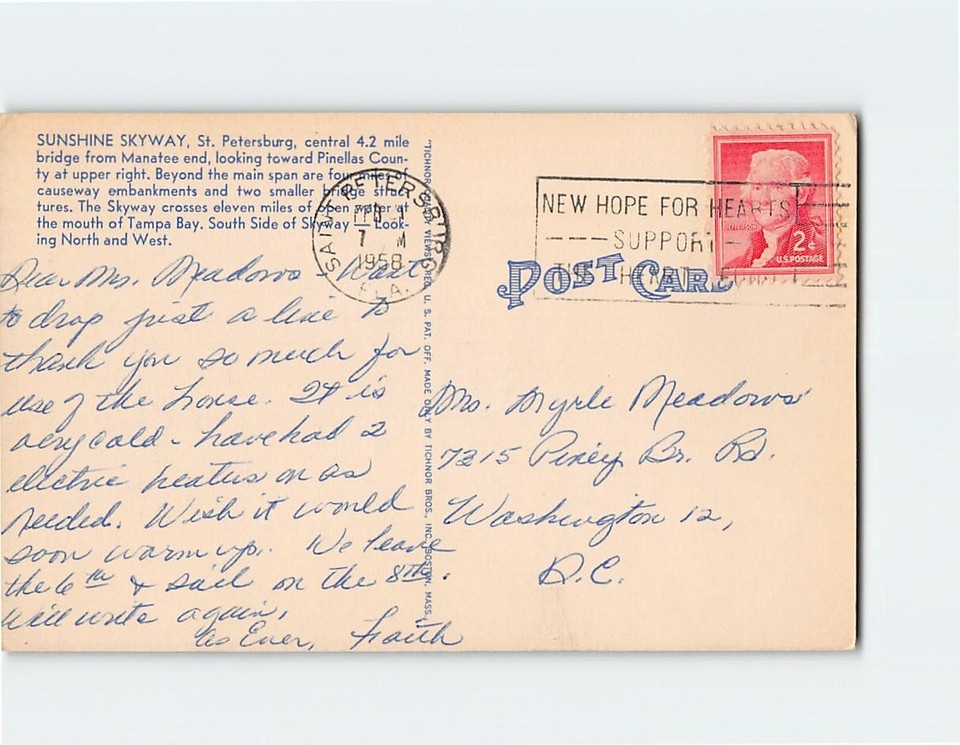 SUNSHINE SKYWAY, St. Petersburg, central 4.2 mile
bridge from Manatee end, looking toward Pinellas Coun-
ty at upper right. Beyond the main span are four miles of
causeway embankments and two smaller bridge struc-
tures. The Skyway crosses eleven miles of open water at
the mouth of Tampa Bay. South Side of Skyway — Look-
ing North and West.
Dear Mrs. Meadows - Want
to drop just a line to
thank you so much for
use of the house. It is
very cold - have had 2
electric heaters on as
needed. Wish it would
soon warm up. We leave
the 6th & sail on the 8th.
Will write again.
As Ever, Faith
"TICHNOR QUALITY VIEWS" REG. U. S. PAT. OFF. MADE ONLY BY TICHNOR BROS., INC., BOSTON, MASS.
SAINT PETERSBURG
FEB 1
7 M
1958
FLA.
NEW HOPE FOR HEARTS
SUPPORT
THE HEART FUND
JEFFERSON
2¢
U.S. POSTAGE
POST CARD
Mrs. Myrle Meadows
7315 Piney Br. Rd.
Washington 12,
D.C.